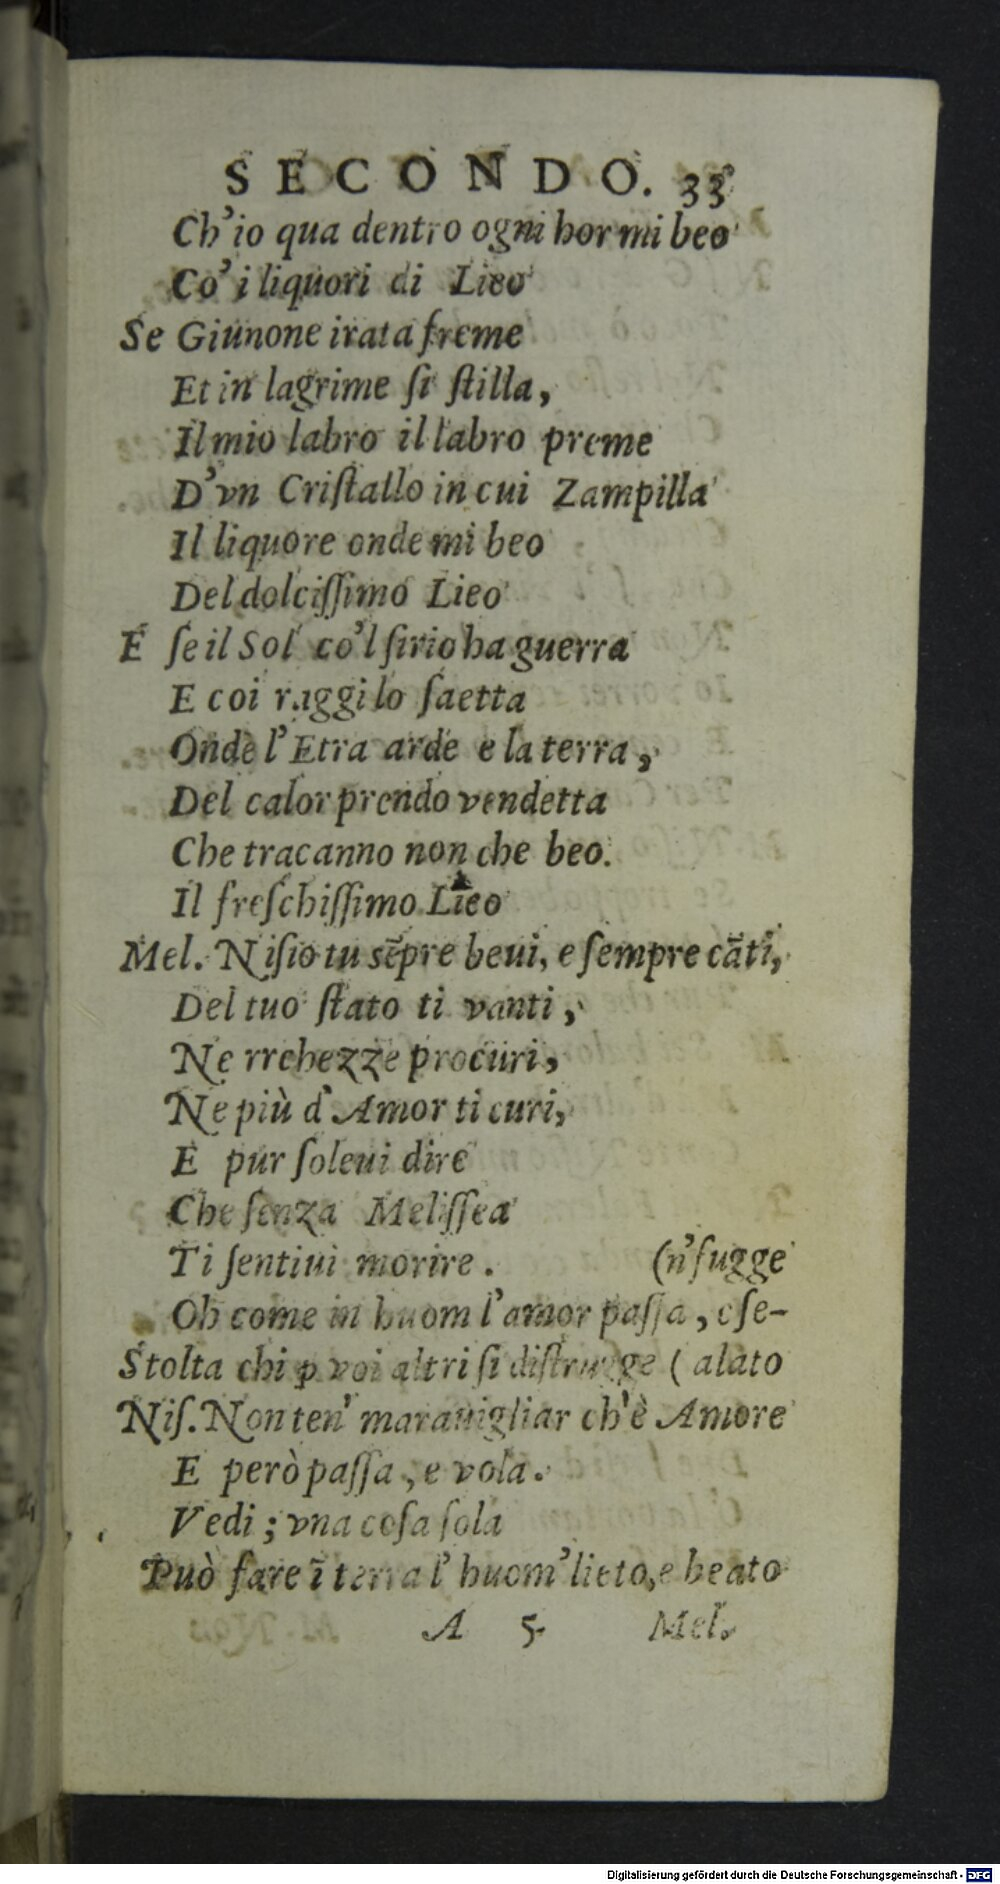 SECONDO. 33
Ch'io qua dentro ogni hor mi beo
Co' i liquori di Lieo
Se Giunone irata freme
Et in lagrime ſi ſtilla,
Il mio labro il labro preme
D'vn Criſtallo in cui Zampilla
Il liquore onde mi beo
Del dolciſſimo Lieo
E ſe il Sol co'l ſirio ha guerra
E coi raggi lo ſaetta
Onde l'Etra arde e la terra,
Del calor prendo vendetta
Che tracanno non che beo.
Il freſchiſſimo Lieo
Mel. Niſio tu sẽpre beui, e ſempre cãti,
Del tuo ſtato ti vanti,
Ne rrchezze procuri,
Ne più d'Amor ti curi,
E pur ſoleui dire
Che ſenza Meliſſea
Ti ſentiui morire. (n'fugge
Oh come in huom l'amor paſſa, e ſe-
Stolta chi ꝑ voi altri ſi diſtrugge (alato
Niſ. Non ten' marauigliar ch'è Amore
E però paſſa, e vola.
Vedi; vna coſa ſola
Può fare ĩ terra l'huom' lieto, e beato
A 5 Mel.
Digitalisierung gefördert durch die Deutsche Forschungsgemeinschaft - DFG